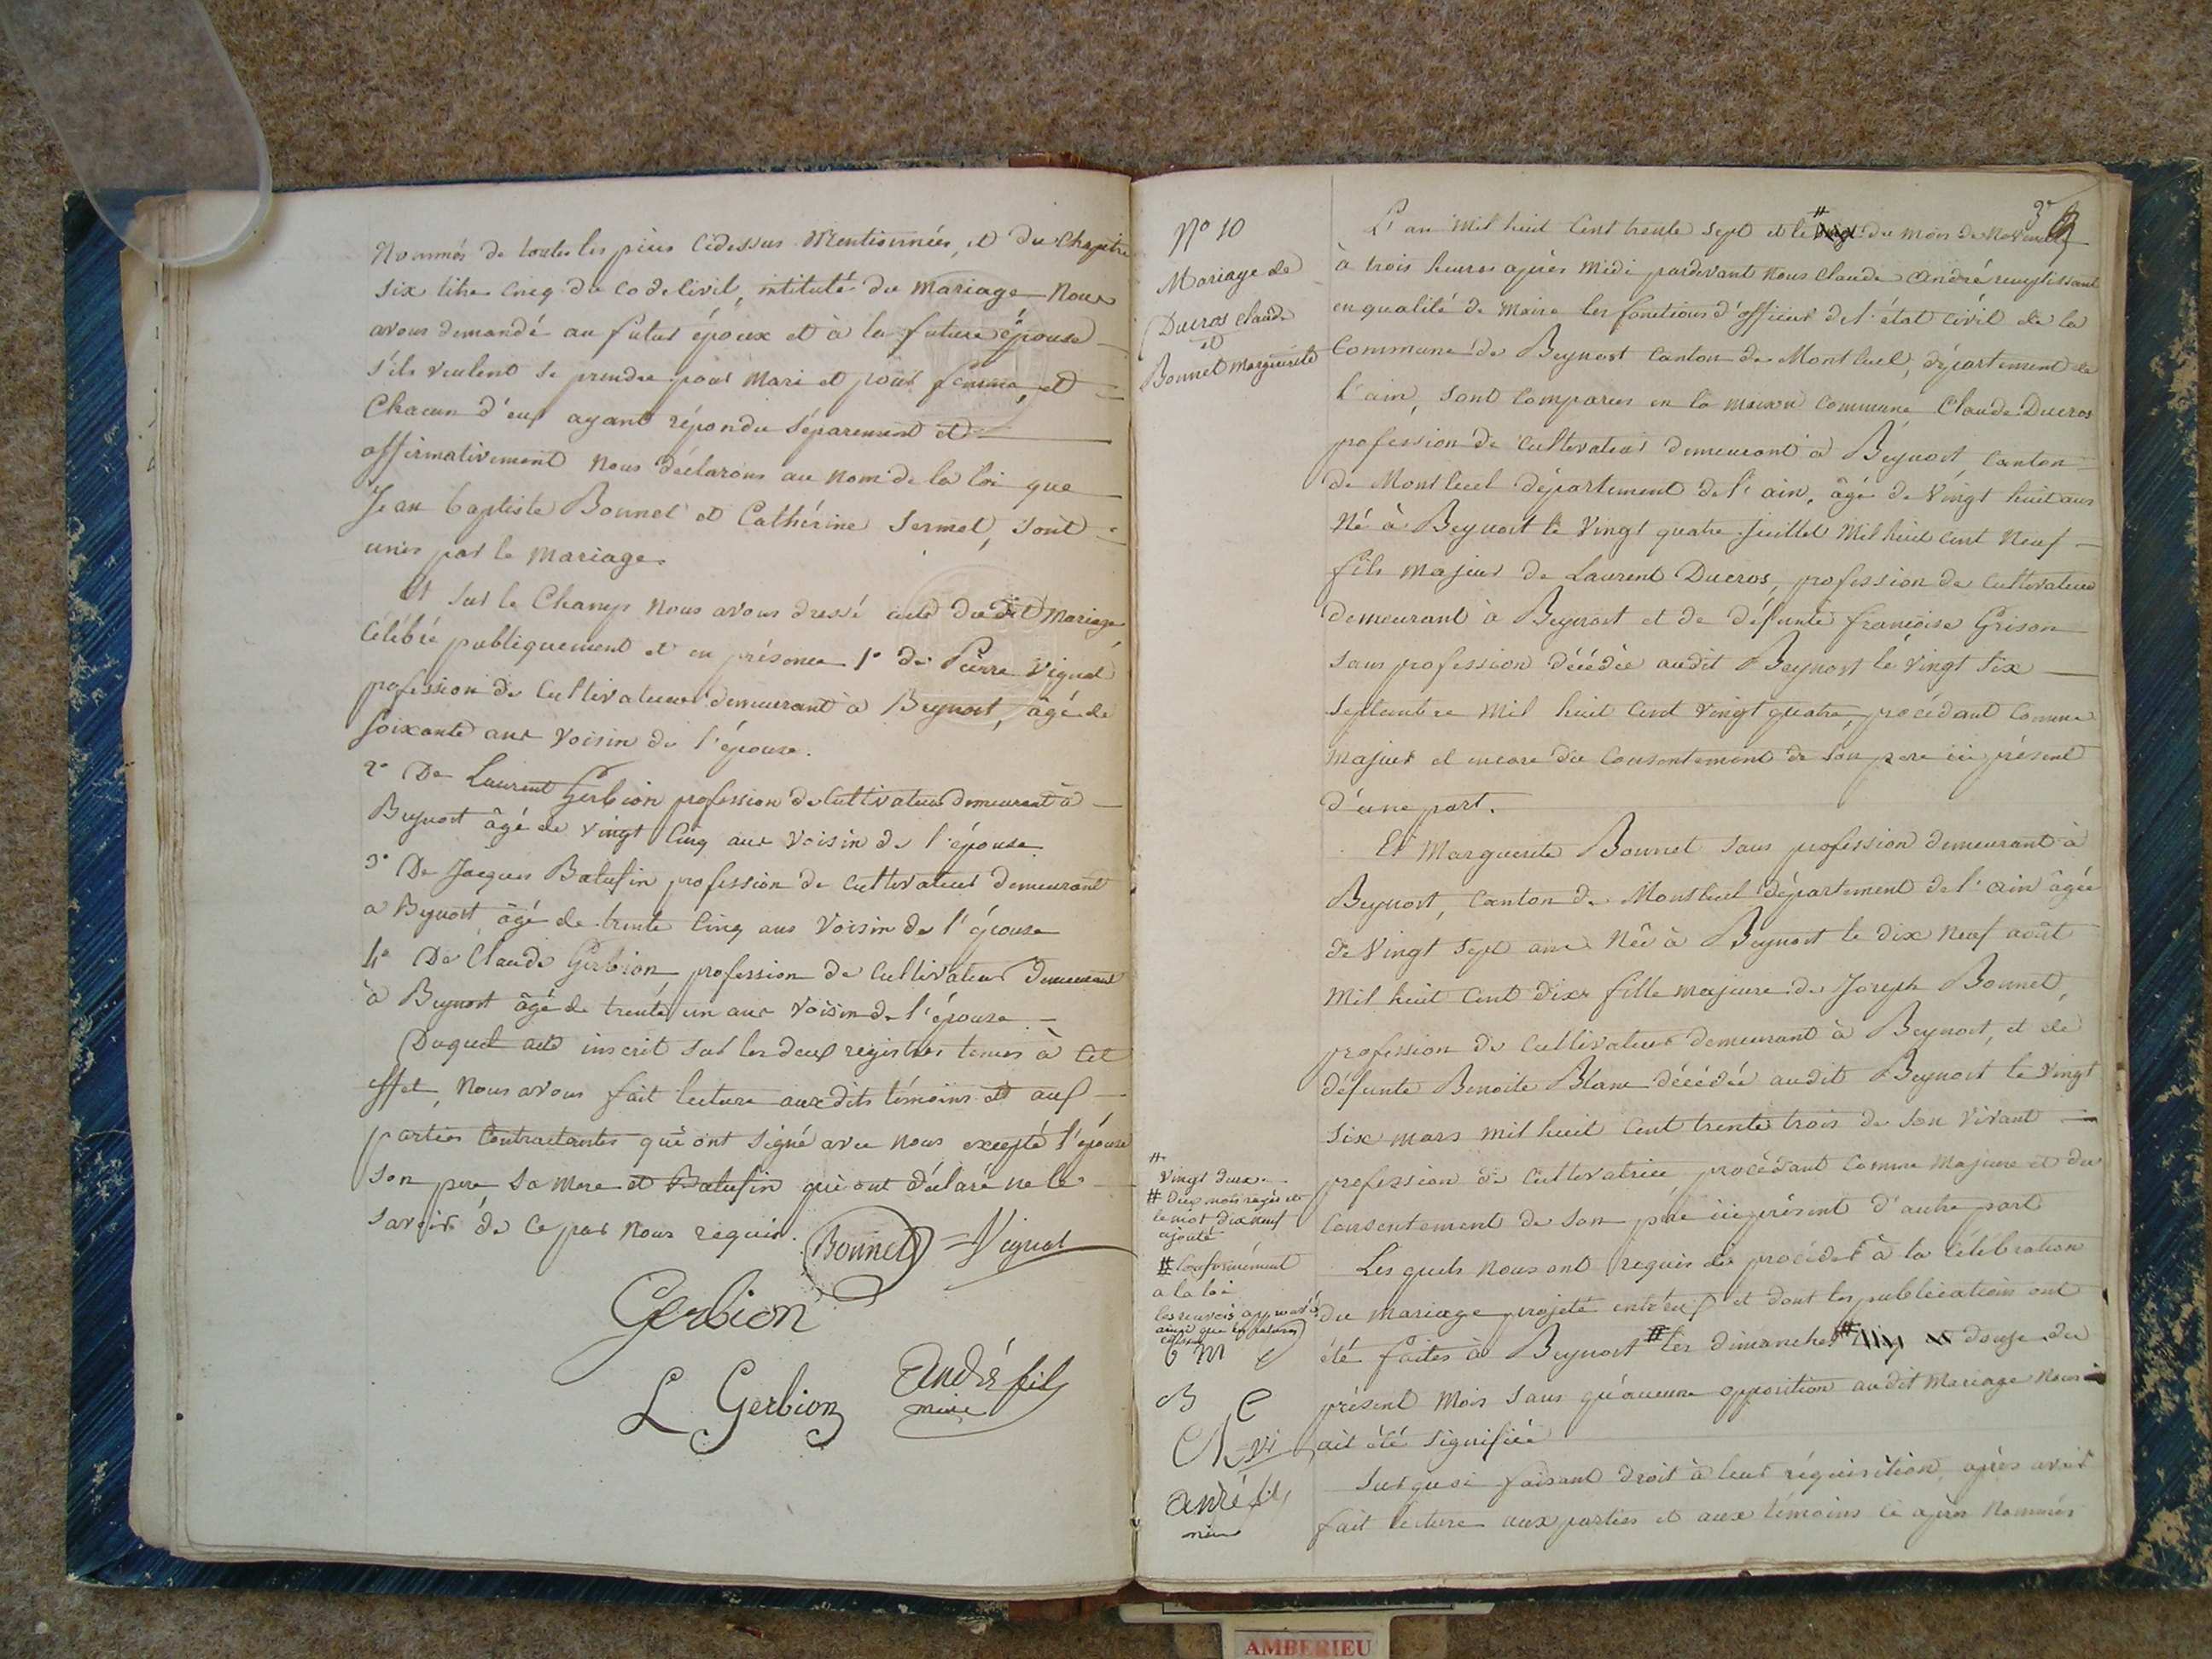 Nommés de toutes les pièces cidessus mentionnées, et du chapitre
six titre cinq du code civil, intitulé du mariage nous
avons demandé au futur époux et à la future épouse
s'ils veulent se prendre pour mari et pour femme, et
Chacun d'eux ayant répondu séparement et
affirmativement nous déclarons au nom de la loi que
Jean baptiste Bonnet et Cathérine Sermet, sont
unis par le mariage.
Et sur le Champ nous avons dressé acte dudit mariage
célébré publiquement et en présence 1° de Pierre Vignat
profession de cultivateur demeurant à Beynost, âgé de
soixante ans voisin de l'épouse.
2° De Laurent Gerbion profession de cultivateur demeurant à
Beynost âgé de vingt cinq ans voisin de l'épouse
3° De Jacques Balufin profession de cultivateur demeurant
a Beynost, âgé de trente cinq ans voisin de l'épouse
4° De Claude Gerbion profession de cultivateur demeurant
à Beynost âgé de trente un ans voisin de l'épouse
Duquel acte inscrit sur les deux registres tenus à cet
effet, nous avons fait lecture auxdits témoins et aux
parties contractantes qui ont signé avec nous excepté l'épouse
son pere, sa mere et Balufin qui ont déclaré ne le
savoir de ce par nous requis.
Bonnet Vignat
Gerbion
L Gerbion André fils
maire
3e
N° 10
Mariage de
Ducros Claude
et
Bonnet Marguerite
L'an mil huit cent trente sept et le # du mois de novembre
à trois heures après midi pardevant nous Claude André remplissant
en qualité de maire les fonctions d'officier de l'état civil de la
Commune de Beynost canton de Montluel, département de
l'ain, sont comparus en la maison commune Claude Ducros
profession de cultivateur demeurant à Beynost, canton
de Montluel département de l'ain, âgé de vingt huit ans
Né à Beynost le vingt quatre juillet mil huit cent neuf
fils majeur de Laurent Ducros, profession de cultivateur
demeurant à Beynost et de défunte françoise Grison
sans profession décédée audit Beynost le vingt six
septembre mil huit cent vingt quatre, procédant comme
majeur et encore du consentement de son pere ici présent
d'une part.
Et Marguerite Bonnet sans profession demeurant à
Beynost, canton de Montluel département de l'ain âgée
de vingt sept ans née à Beynost le dix neuf août
mil huit cent dix fille majeure de Joseph Bonnet,
profession de cultivateur demeurant à Beynost, et de
défunte Benoite Blanc décédée audit Beynost le vingt
six mars mil huit cent trente trois de son vivant
profession de cultivatrice, procédant comme majeure et du
consentement de son père ici présent d'autre part
Lesquels nous ont requis de procéder à la célébration
du mariage projeté entr'eux et dont les publications ont
été faites à Beynost # les dimanches # douze du
présent mois sans qu'aucune opposition audit mariage nous
ait été signifiée
Sur quoi faisant droit à leur réquisition, après avoir
fait lecture aux parties et aux témoins ci après nommés
#
vingt deux
# Deux mots rayés et
le mot dix neuf
ajouté
# Conformément
a la loi
les renvois approuvés
ainsi que
André fils
maire
AMBERIEU